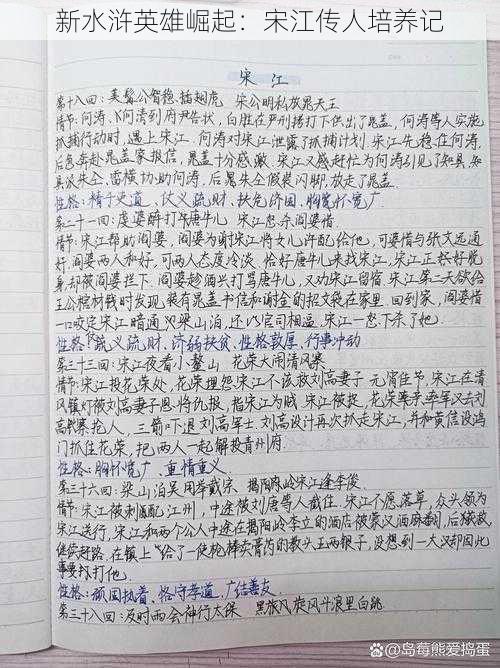 新水浒英雄崛起：宋江传人培养记
宋 江
第十八回：美髯公智稳插翅虎 宋公明私放晁天王
情节：何涛、问清到府尹告状，白胜在严刑拷打下供出了晁盖，何涛等人实施
抓捕行动时，遇上宋江。何涛对宋江泄露了抓捕计划。宋江先稳住何涛，
后急奔赴晁盖家报信，晁盖十分感激。宋江又感赶忙为何涛引见了知县，知
县派朱仝、雷横协助何涛，后晁朱仝假装闪脚，放走了晁盖。
性格：精于吏道，仗义疏财、扶危济困、胸怀宽广。
第二十一回：虔婆醉打唐牛儿 宋江怒杀阎婆惜
情节：宋江帮助阎婆，阎婆为谢宋江将女儿许配给他，可婆惜与张文远通
奸，阎婆两人和好，可两人态度冷淡，恰好唐牛儿来找宋江，宋江正想好脱
身，却被阎婆拦下，阎婆趁酒兴打骂唐牛儿，又劝宋江留宿，宋江第二天欲给
王公棺材钱时发现，装有晁盖书信和谢金的招文袋在家里，回到家，阎婆惜
一口咬定宋江暗通梁山泊，还以官司相逼，宋江一怒下杀了她。
性格：疏义疏财、济弱扶贫、性格敦厚、行事冲动
第三十三回：宋江夜看小鳌山 花荣大闹清风寨
情节：宋江投花荣处，花荣埋怨宋江不该救刘高妻子，元宵佳节，宋江在清
风镇灯被刘高妻子恩将仇报，指宋江为贼，宋江被捉，花荣率亲军又去刘
高救宋抢人，三箭吓退刘高军士，刘高设计再次抓走宋江，并和黄信设鸿
门抓住花荣，把两人一起解投青州府
性格：胸怀宽广、重情重义。
第三十六回：梁山泊吴用举戴宗 揭阳岭宋江逢李俊。
情节：宋江被刺配江州，中途被刘唐等人截住，宋江不愿落草，众头领为
宋江送行，宋江和两个公人中途在揭阳岭李立的酒店被蒙汉酒麻翻，后获救
继续赶路，在镇上给了一使枪棒卖膏药的教头五两银子，没想到一大汉却因此
事要找打他。
性格：顽固执着，恪守孝道，广结善友。
第三十八回：及时雨会神行太保 黑旋风旋风斗浪里白跳
@岛莓熊爱捣蛋